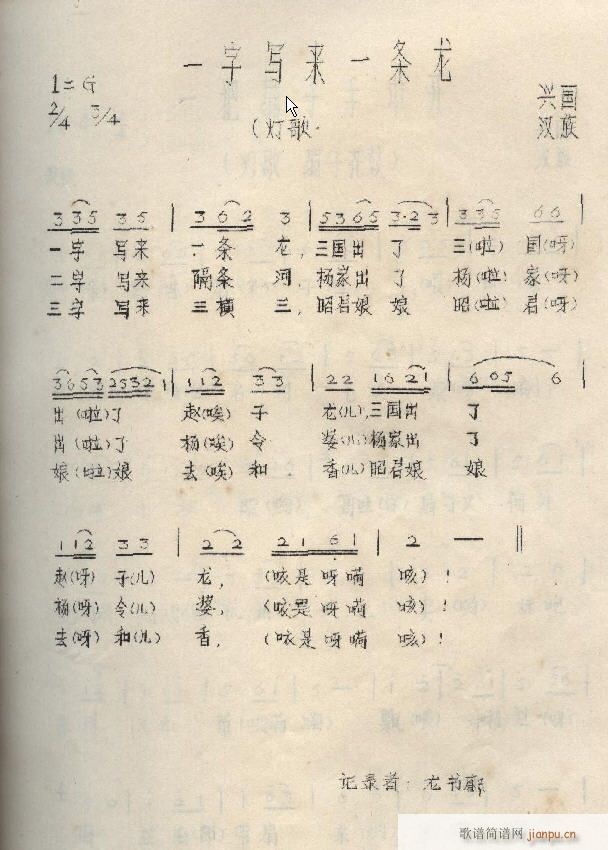 一字写来一条龙
1=G
2/4 3/4
兴国
汉族
(灯歌
3 3 5 3 5 | 3 6 2 3 | 5 3 6 5 3·2 3 | 3 3 5 6 6 |
一字 写来 一条 龙, 三国出 了 三(啦) 国(呀)
二字 写来 隔条 河 杨家出 了 杨(啦) 家(呀)
三字 写来 三横 三, 昭君娘 娘 昭(啦) 君(呀)
3 6 5 3 2 5 3 2 1 | 1 1 2 3 3 | 2 2 1 6 2 1 | 6 6 5 6 |
出(啦)了 赵(唉) 子 龙(儿), 三国出 了
出(啦)了 杨(唉) 令 婆(儿) 杨家出 了
娘(啦)娘 去(唉) 和 香(儿) 昭君娘 娘
1 1 2 3 3 | 2 2 2 1 6 1 | 2 — ‖
赵(呀) 子(儿) 龙, (咳是呀嗬 咳)!
杨(呀) 令(儿) 婆, (咳是呀嗬 咳)!
去(呀) 和(儿) 香, (咳是呀嗬 咳)!
记录者: 龙书
歌谱简谱网 jianpu.cn